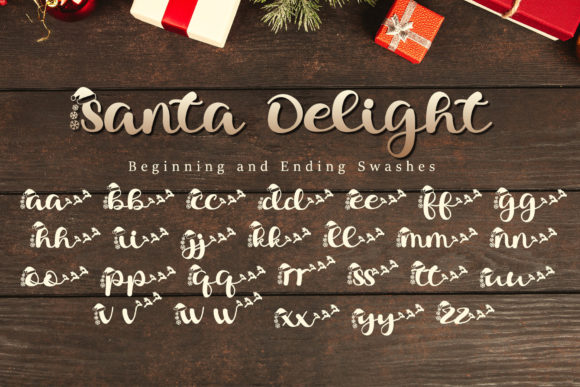 Santa Delight
Beginning and Ending Swashes
aa bb cc dd ee ff gg
hh ii jj kk ll mm nn
oo pp qq rr ss tt uu
v v w w xx yy zz